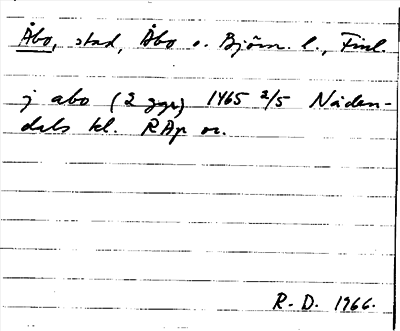 Åbo, stad, Åbo o. Björn. l., Finl.
j abo (2 ggr) 1465 2/5 Nåden-
dals kl. RAp or.
R. D. 1966.